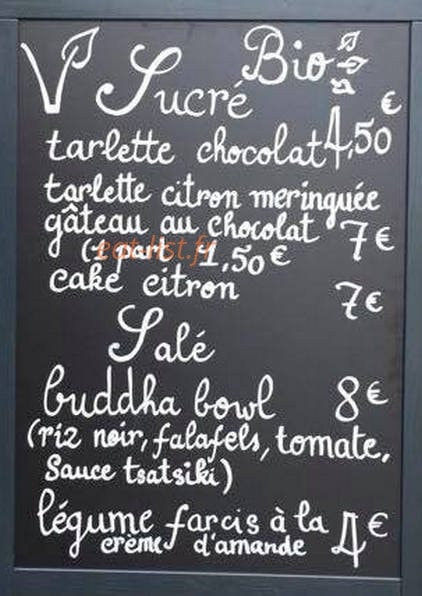 V Sucré Bio
€
tarlette chocolat 4,50
tarlette citron meringuée
gâteau au chocolat 7€
(1 part 1,50€
eat-list.fr
cake citron 7€
Salé
buddha bowl 8€
(riz noir, falafels, tomate,
sauce tsatsiki)
légume farcis à la 4€
crème d'amande